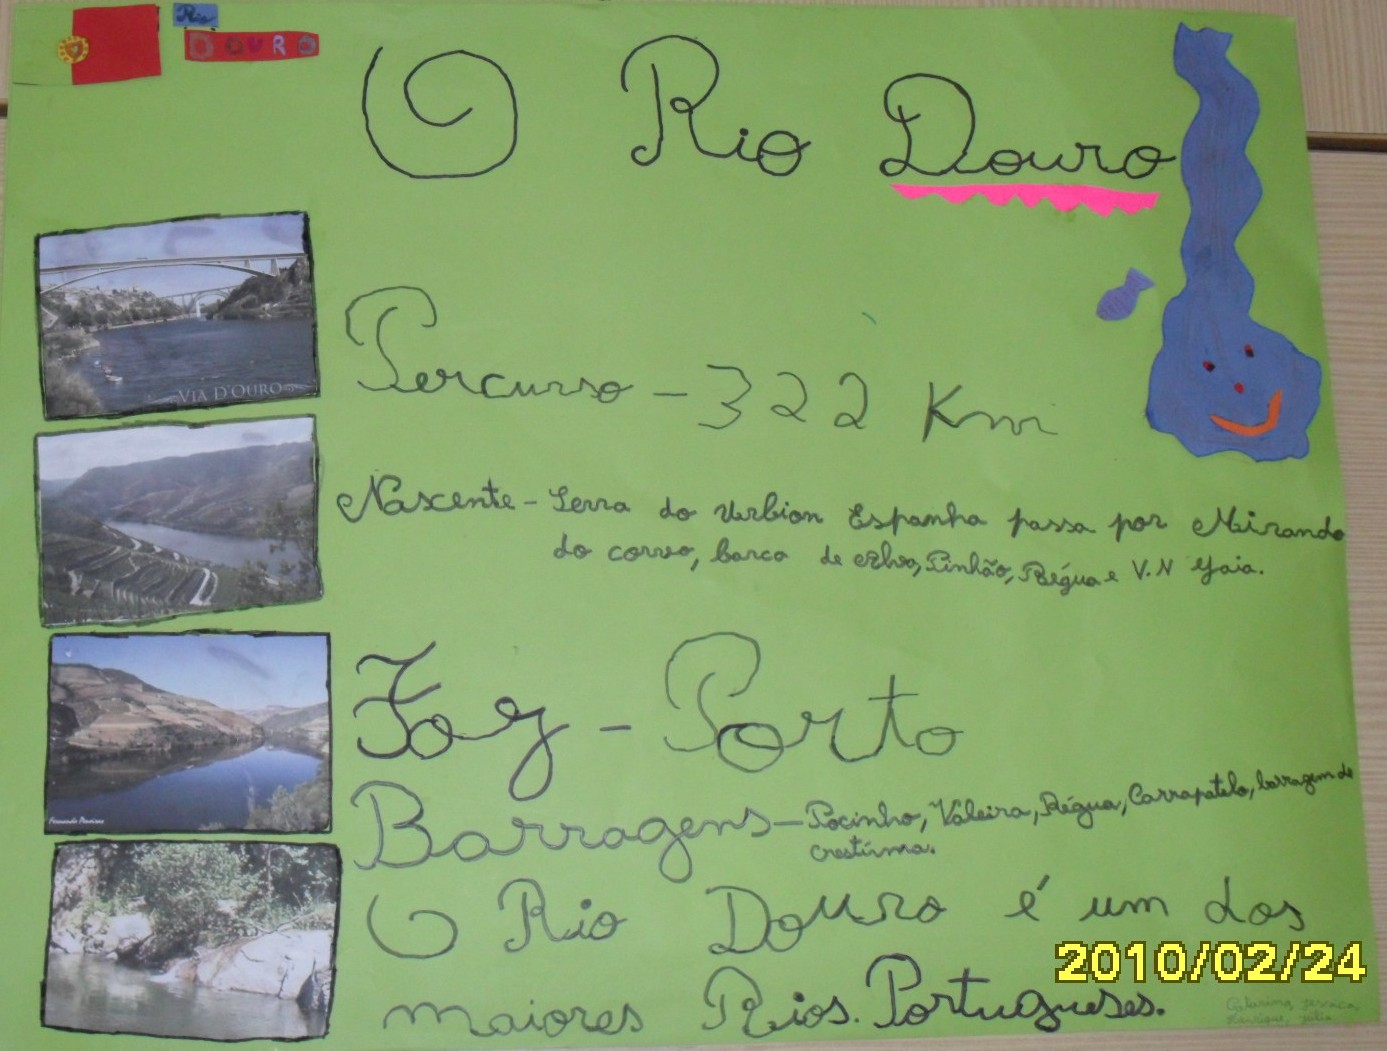 Rio
DOURO
O Rio Douro
VIA D'OURO
Percurso - 322 Km
Nascente - Serra do Urbion Espanha passa por Mirando
do corvo, barca de alva, Pinhão, Régua e V.N Gaia.
Foz - Porto
Fernando Peneiras
Barragens - Pocinho, Valeira, Régua, Carrapatelo, barragem de
crestuma.
O Rio Douro é um dos
2010/02/24
maiores Rios. Portugueses.
Catarina, Jessica,
Henrique, Júlia